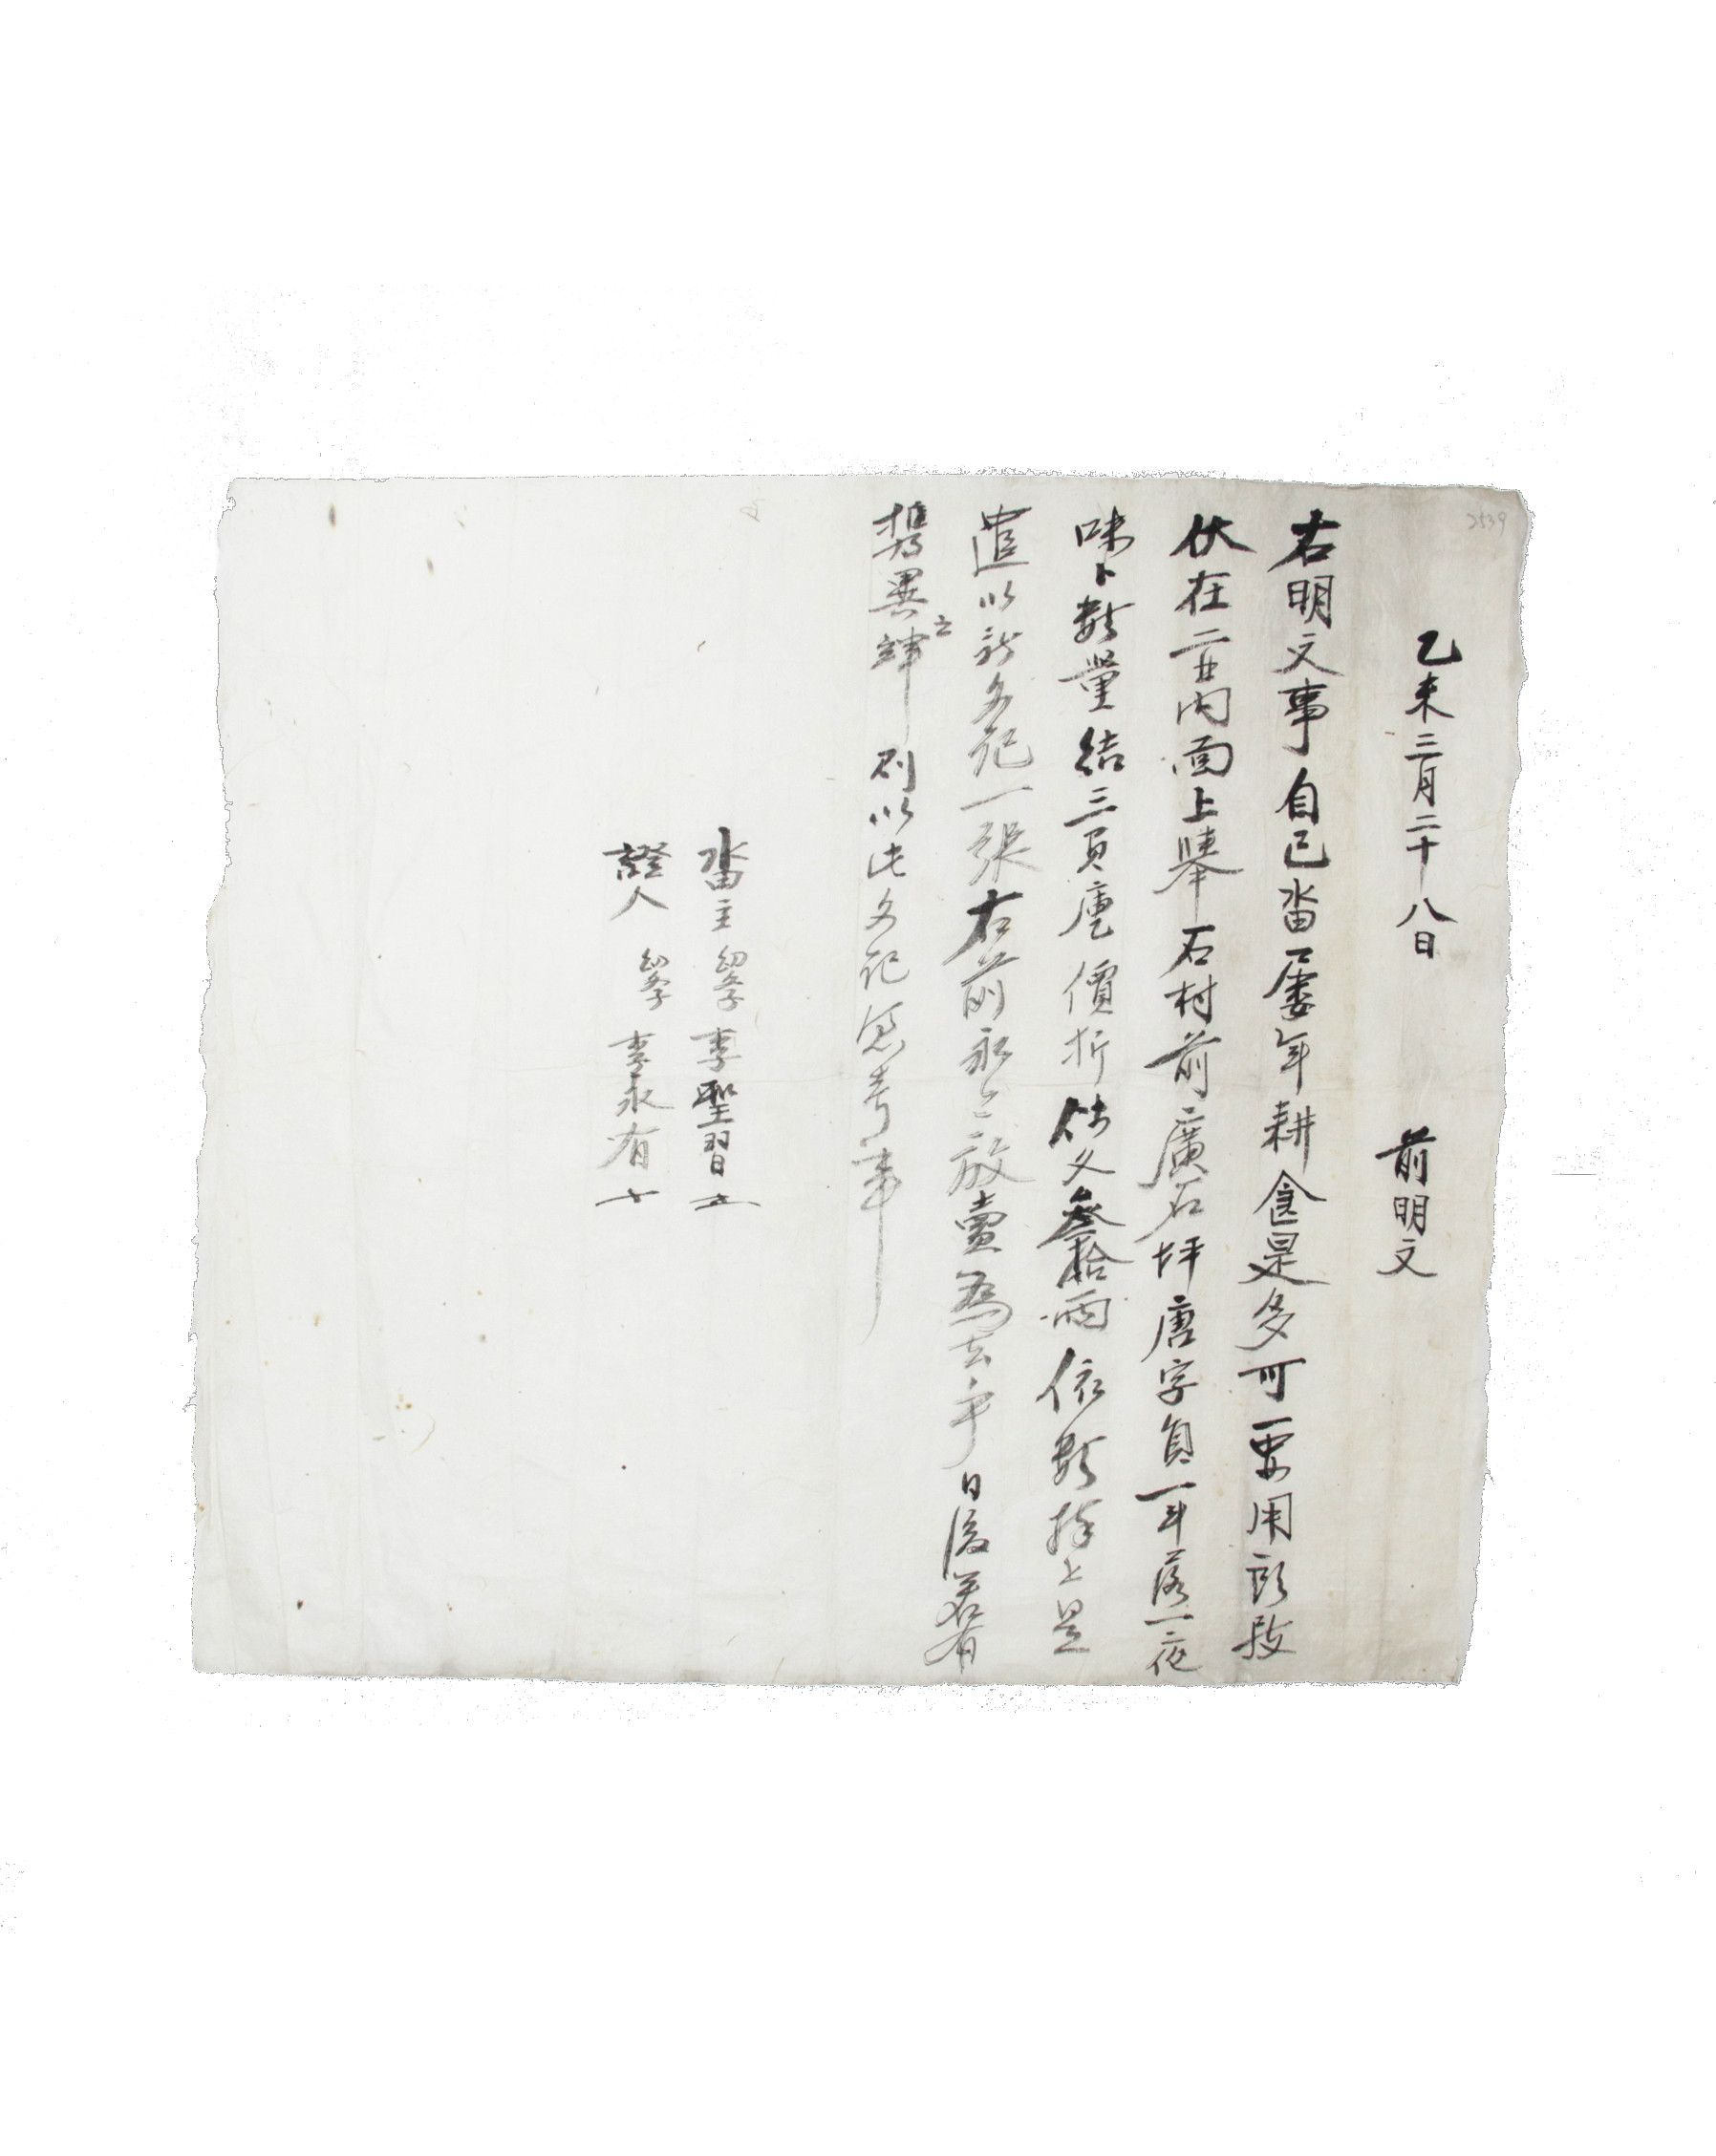 乙未三月二十八日 前明文
右明文事自己畓屢年耕食是多可要用所致
伏在二西內面上擧石村前廣石坪唐字員一斗落一夜
味卜數量結三負庫價折錢文參拾兩依數捧上是
遣以新文記一張右前永永放賣爲去乎日後若有
携異之端則以此文記憑考事
畓主 幼學 李聖習
證人 幼學 李永有
2539